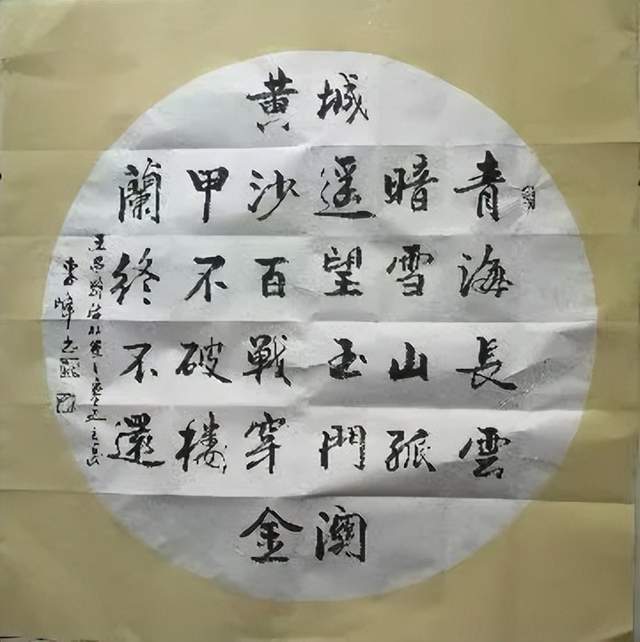 青海長雲
暗雪山孤
城遥望玉門關
黄沙百戰穿金
甲不破楼
蘭終不還
王昌齡詩
李峰